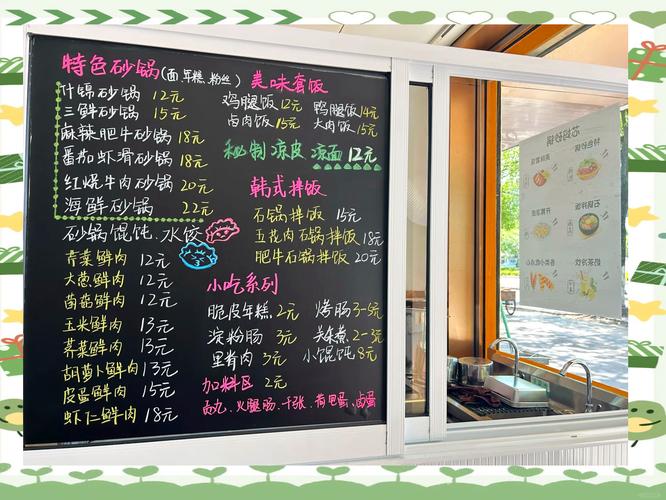 特色砂锅(面.年糕.粉丝)
什锦砂锅 12元
三鲜砂锅 15元
麻辣肥牛砂锅 18元
番茄虾滑砂锅 18元
红烧牛肉砂锅 20元
海鲜砂锅 22元
砂锅馄饨.水饺
青菜鲜肉 12元
大葱鲜肉 12元
菌菇鲜肉 12元
玉米鲜肉 13元
荠菜鲜肉 13元
胡萝卜鲜肉 13元
皮蛋鲜肉 15元
虾仁鲜肉 18元
美味套饭
鸡腿饭 12元 鸭腿饭 14元
卤肉饭 15元 大肉饭 15元
秘制凉皮 凉面 12元
韩式拌饭
石锅拌饭 15元
五花肉石锅拌饭 18元
肥牛石锅拌饭 20元
小吃系列
脆皮年糕 2元 烤肠 3-5元
淀粉肠 3元 关东煮 2-3元
里脊肉 3元 小馄饨 8元
加料区 2元
火腿肠、千张、荷包蛋、卤蛋